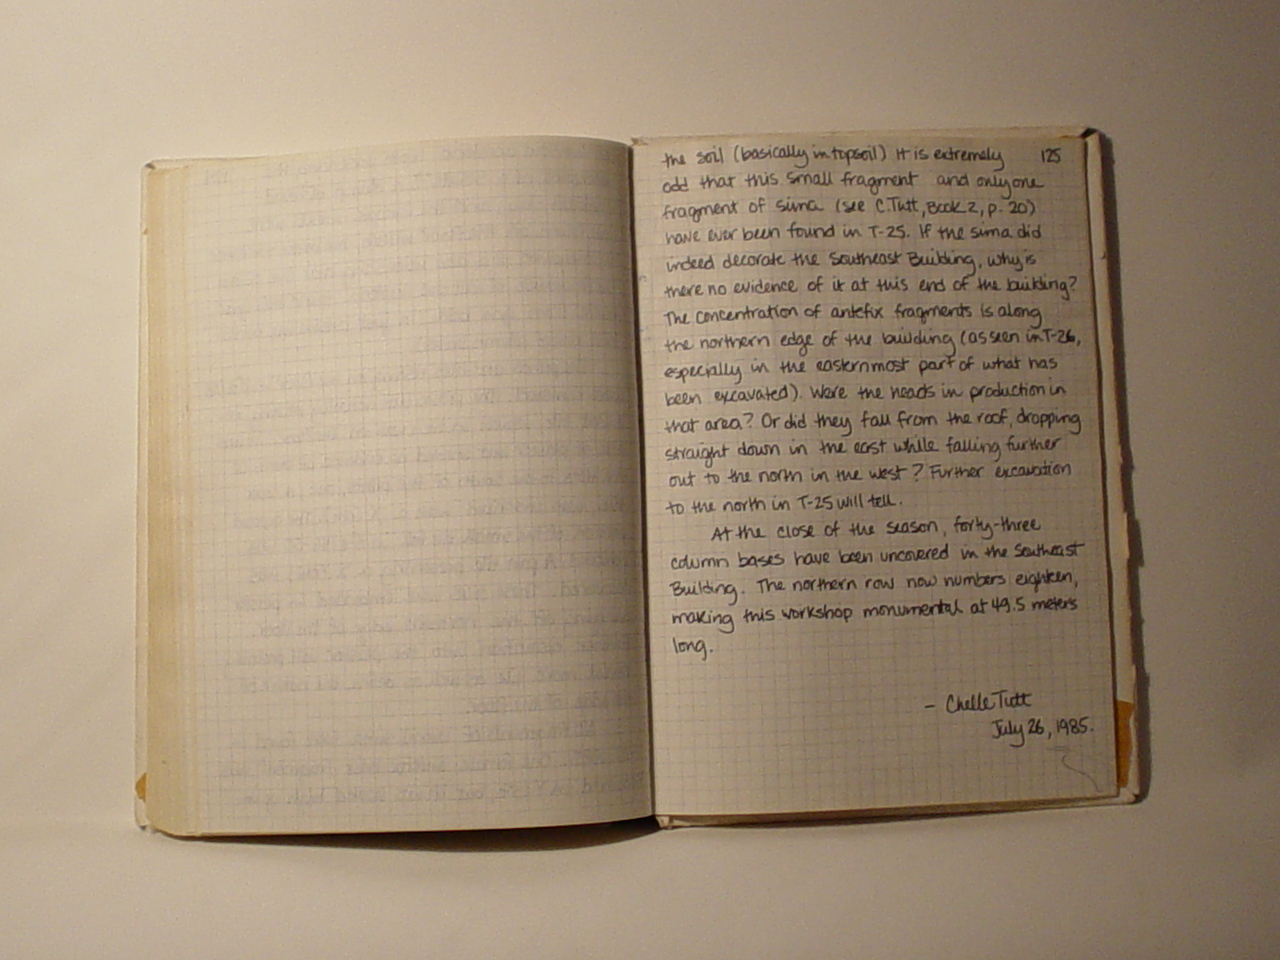 125
the soil (basically in topsoil) It is extremely
odd that this small fragment and only one
fragment of sima (see C.Tutt, Book 2, p. 20)
have ever been found in T-25. If the sima did
indeed decorate the Southeast Building, why is
there no evidence of it at this end of the building?
The concentration of antefix fragments is along
the northern edge of the building (as seen in T-26,
especially in the easternmost part of what has
been excavated). Were the heads in production in
that area? Or did they fall from the roof, dropping
straight down in the east while falling further
out to the north in the west? Further excavation
to the north in T-25 will tell.
At the close of the season, forty-three
column bases have been uncovered in the Southeast
Building. The northern row now numbers eighteen,
making this workshop monumental at 49.5 meters
long.
- Chelle Tutt
July 26, 1985.